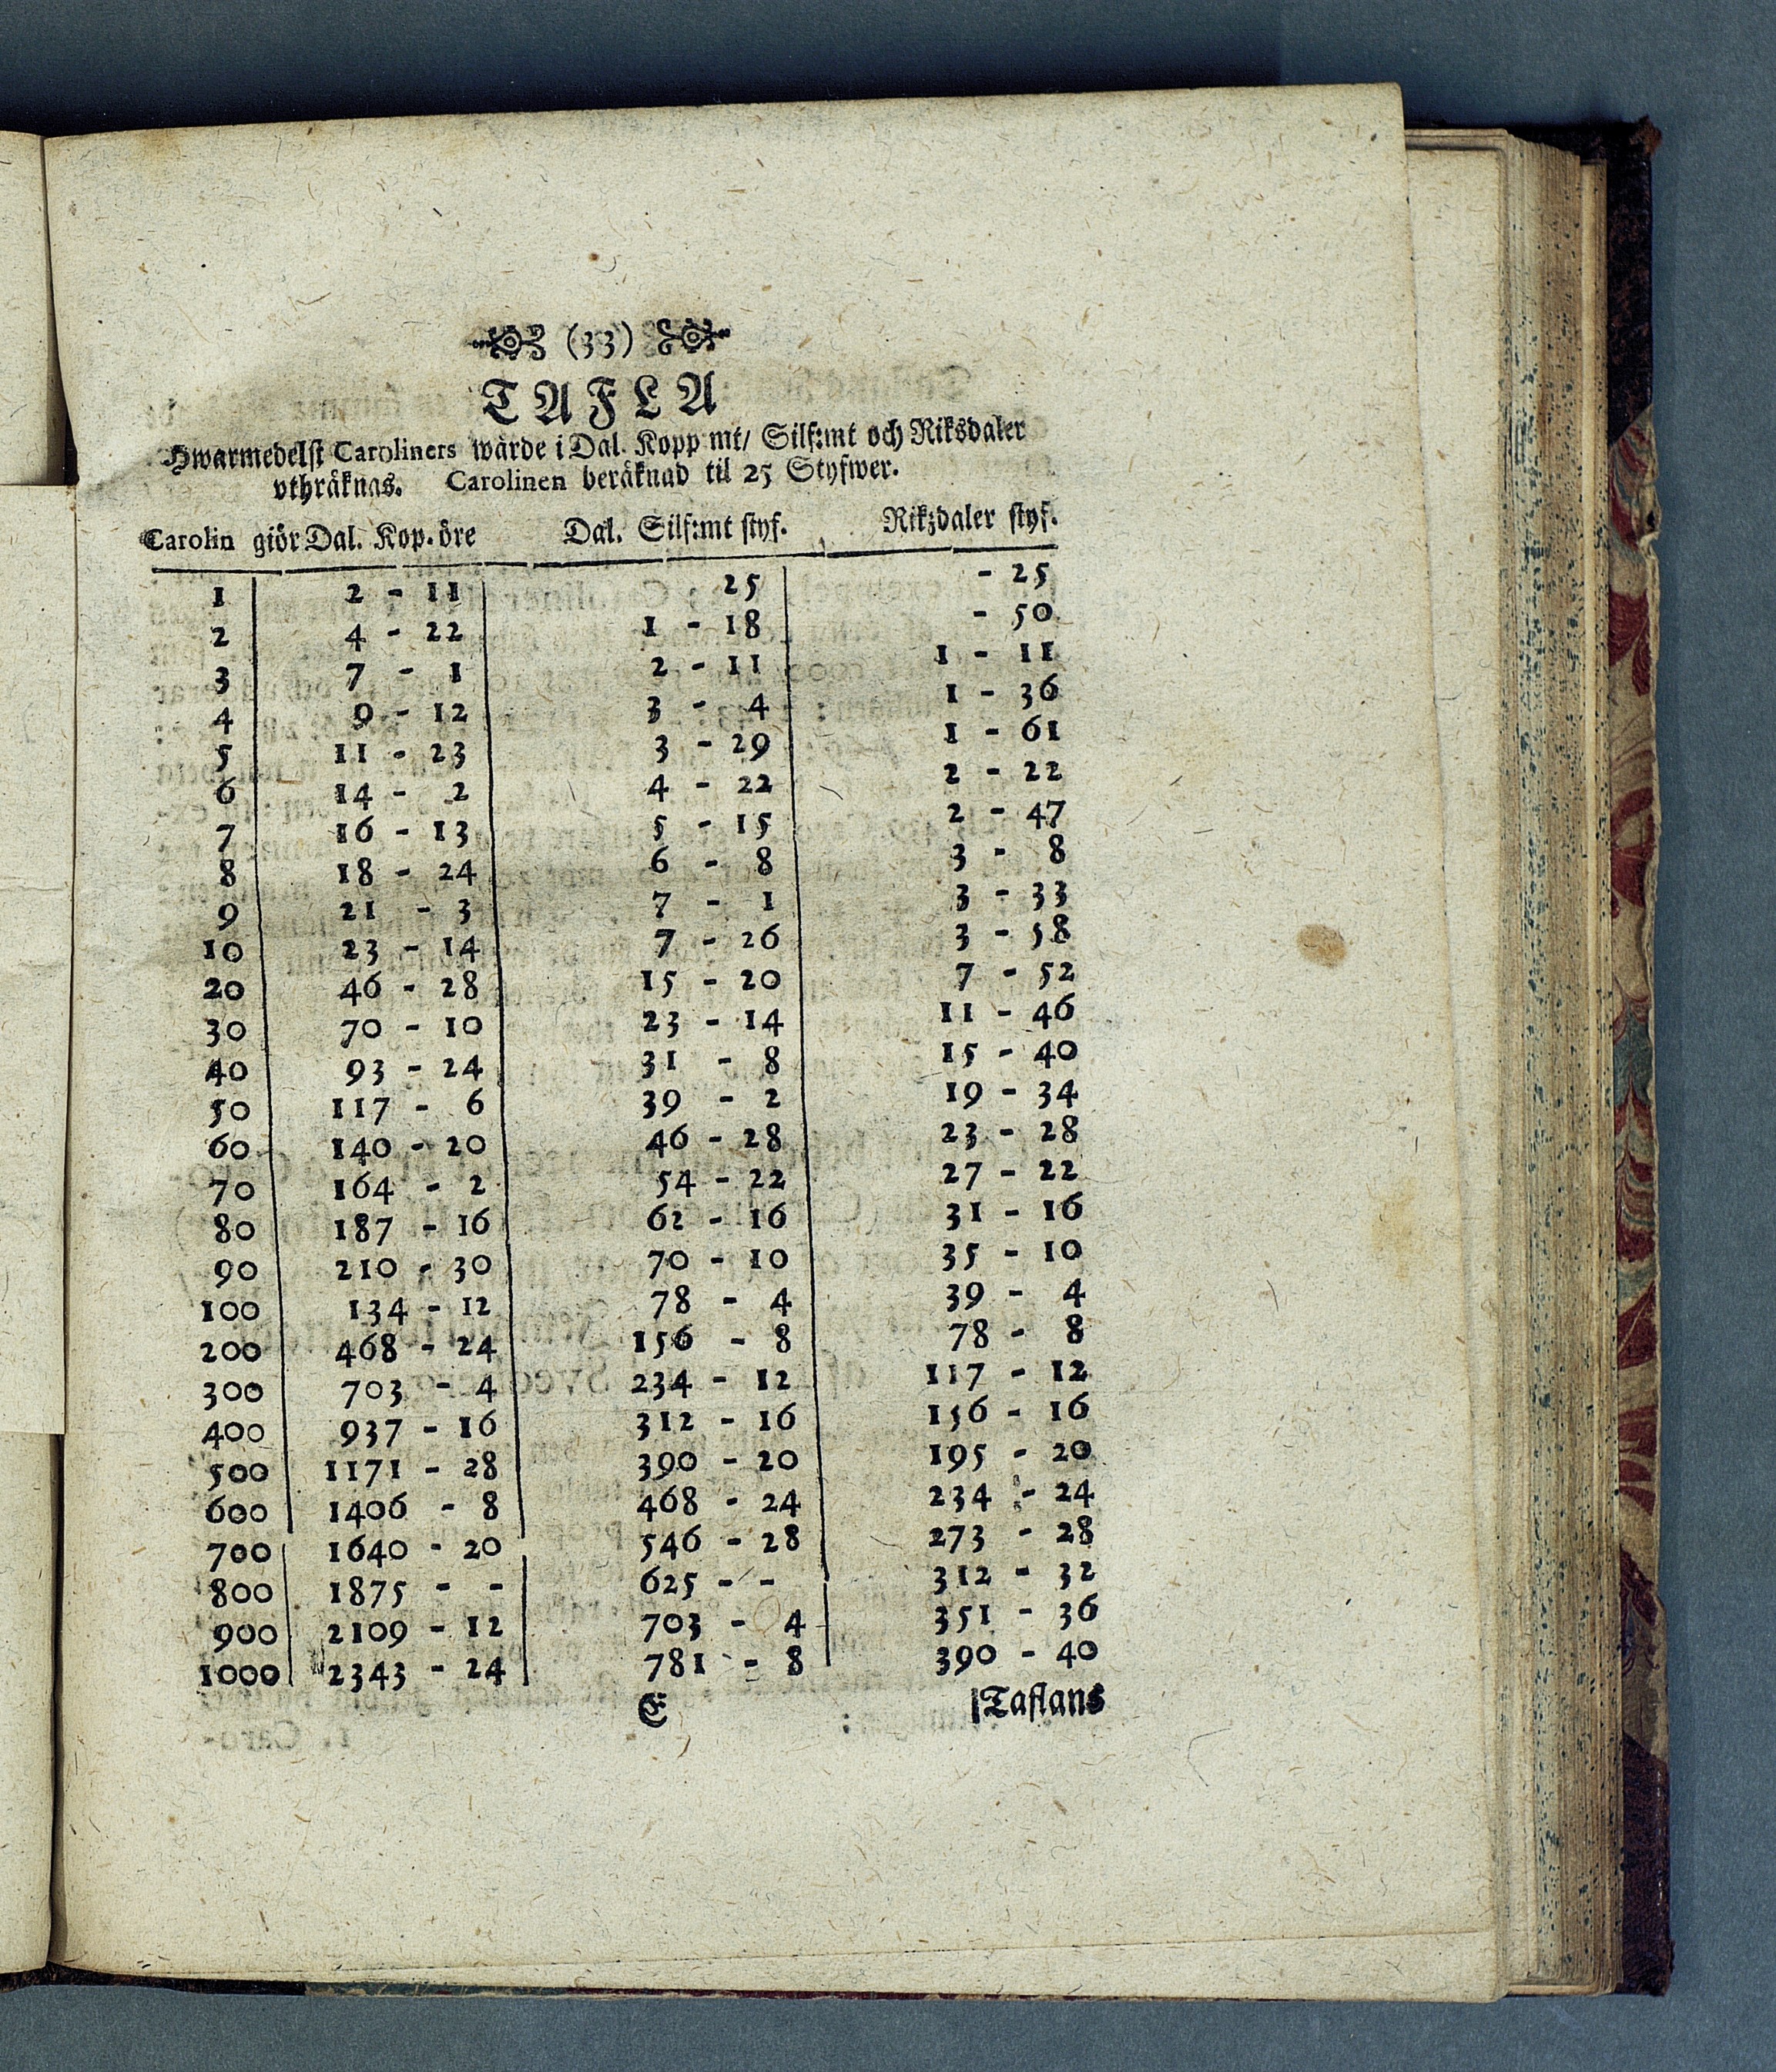 (33)
TAFLA
Hwarmedelst Caroliners wärde i Dal. Kopp mt/ Silf:mt och Riksdaler
vthräknas. Carolinen beräknad til 25 Styfwer.
Carolin giör Dal. Kop. öre Dal. Silf:mt styf. Rikzdaler styf.
1 2 - 11 25 - 25
2 4 - 22 1 - 18 - 50
3 7 - 1 2 - 11 1 - 11
4 9 - 12 3 - 4 1 - 36
5 11 - 23 3 - 29 1 - 61
6 14 - 2 4 - 22 2 - 22
7 16 - 13 5 - 15 2 - 47
8 18 - 24 6 - 8 3 - 8
9 21 - 3 7 - 1 3 - 33
10 23 - 14 7 - 26 3 - 58
20 46 - 28 15 - 20 7 - 52
30 70 - 10 23 - 14 11 - 46
40 93 - 24 31 - 8 15 - 40
50 117 - 6 39 - 2 19 - 34
60 140 - 20 46 - 28 23 - 28
70 164 - 2 54 - 22 27 - 22
80 187 - 16 62 - 16 31 - 16
90 210 - 30 70 - 10 35 - 10
100 134 - 12 78 - 4 39 - 4
200 468 - 24 156 - 8 78 - 8
300 703 - 4 234 - 12 117 - 12
400 937 - 16 312 - 16 156 - 16
500 1171 - 28 390 - 20 195 - 20
600 1406 - 8 468 - 24 234 - 24
700 1640 - 20 546 - 28 273 - 28
800 1875 - - 625 - - 312 - 32
900 2109 - 12 703 - 4 351 - 36
1000 2343 - 24 781 - 8 390 - 40
E Taflans